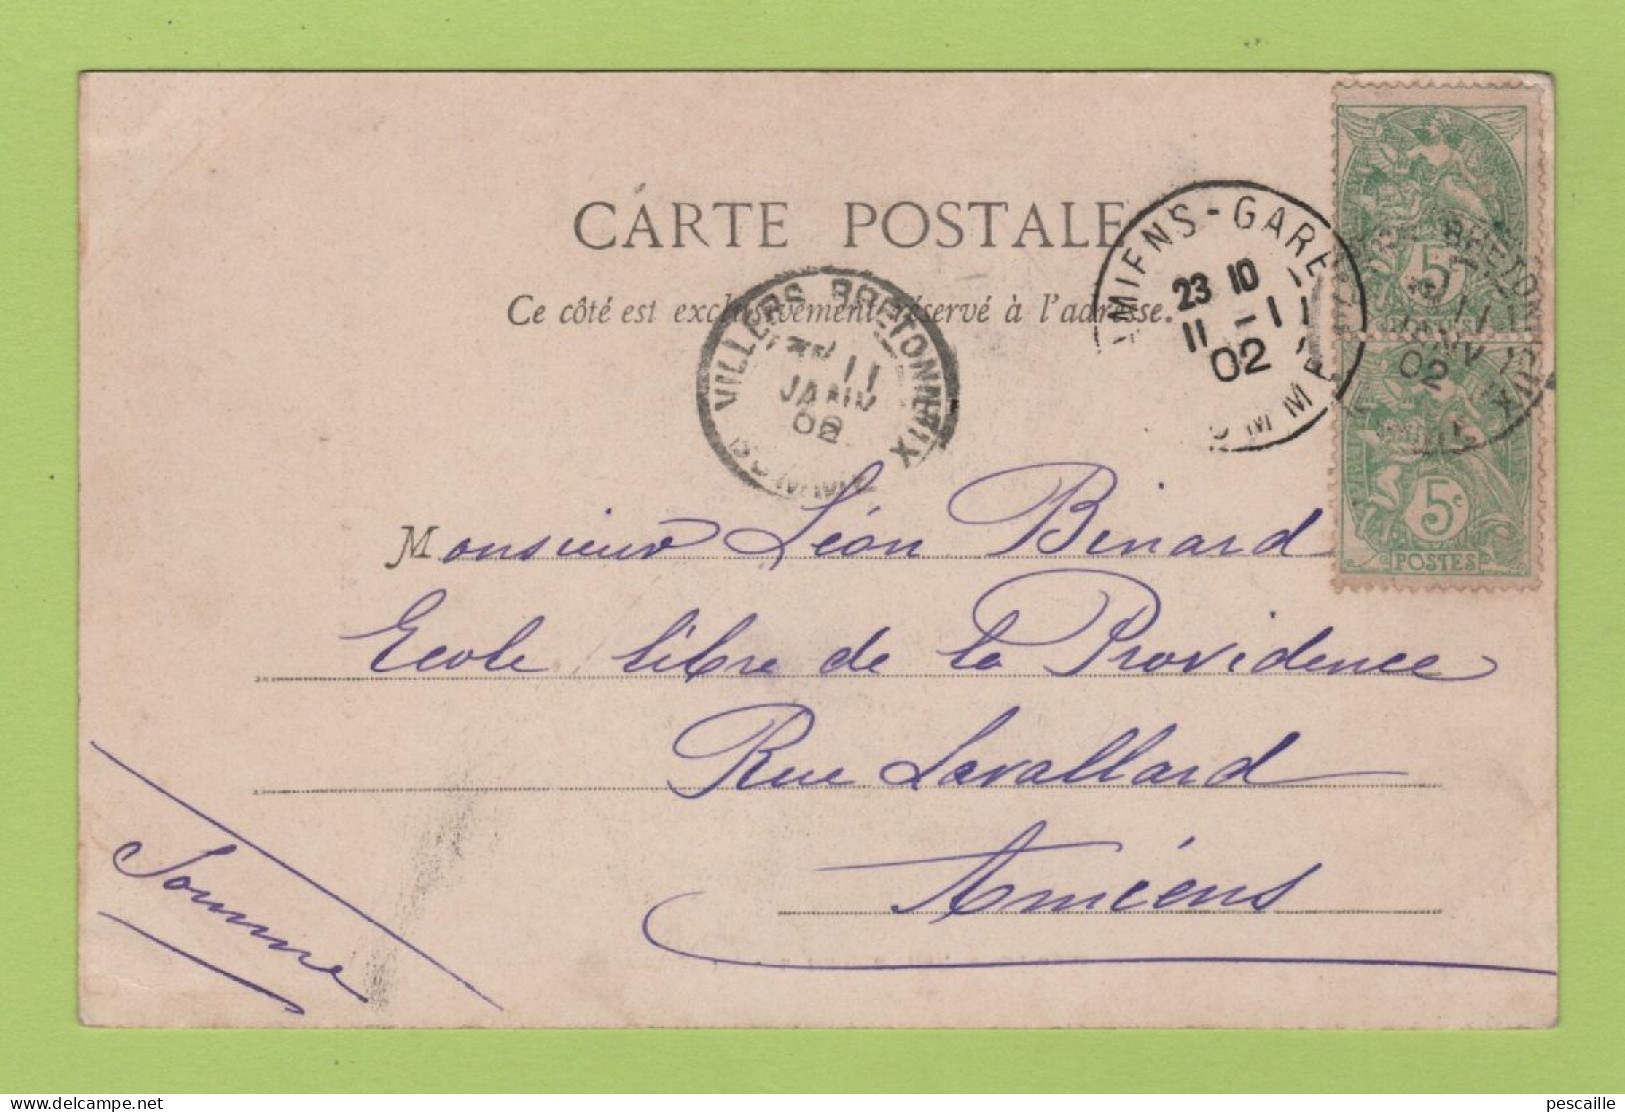 CARTE POSTALE
Ce côté est exclusivement réservé à l'adresse.
VILLERS BRETONNEUX
11
JANV
02
AMIENS-GARE
23 10
11 -1
02
SOMME
BRETONNEUX
11
JANV
02
5c
POSTES
5c
POSTES
Monsieur Léon Binard
Ecole libre de la Providence
Rue Lavallard
Amiéns
Somme
pescaille